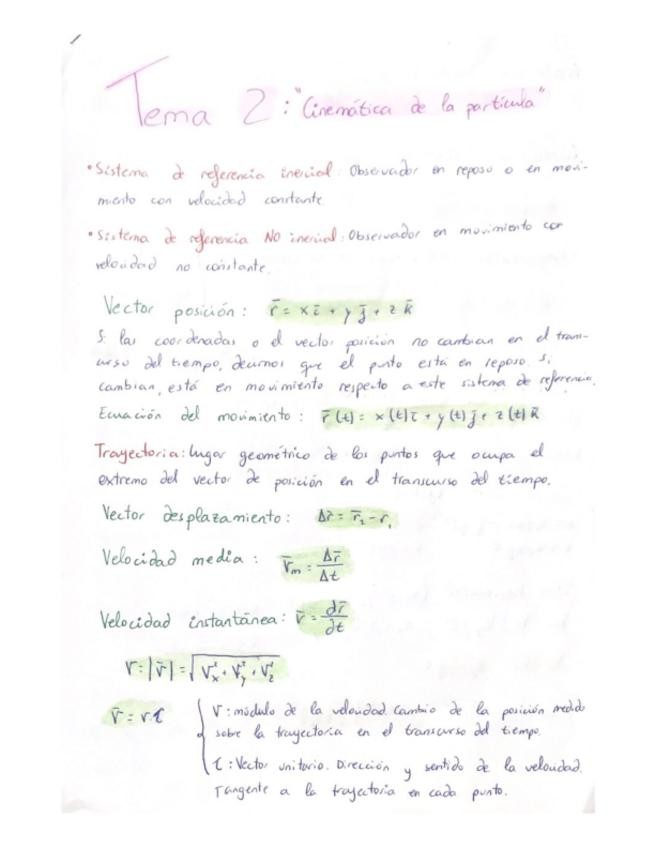 Tema 2: "Cinemática de la partícula"
• Sistema de referencia inercial: Observador en reposo o en movi-
miento con velocidad constante
• Sistema de referencia NO inercial: Observador en movimiento con
velocidad no constante.
Vector posición: r̄ = x ī + y j̄ + z k̄
Si las coordenadas o el vector posición no cambian en el tran-
curso del tiempo, decimos que el punto está en reposo. Si
cambian, está en movimiento respecto a este sistema de referencia.
Ecuación del movimiento: r̄(t) = x(t) ī + y(t) j̄ + z(t) k̄
Trayectoria: lugar geométrico de los puntos que ocupa el
extremo del vector de posición en el transcurso del tiempo.
Vector desplazamiento: Δr̄ = r̄₂ - r̄₁
Velocidad media: v̄ₘ = Δr̄ / Δt
Velocidad instantánea: v̄ = dr̄ / dt
v = |v̄| = √(vₓ² + v_y² + v_z²)
v̄ = v·τ
v: módulo de la velocidad. Cambio de la posición medido
sobre la trayectoria en el transcurso del tiempo.
τ: Vector unitario. Dirección y sentido de la velocidad.
Tangente a la trayectoria en cada punto.